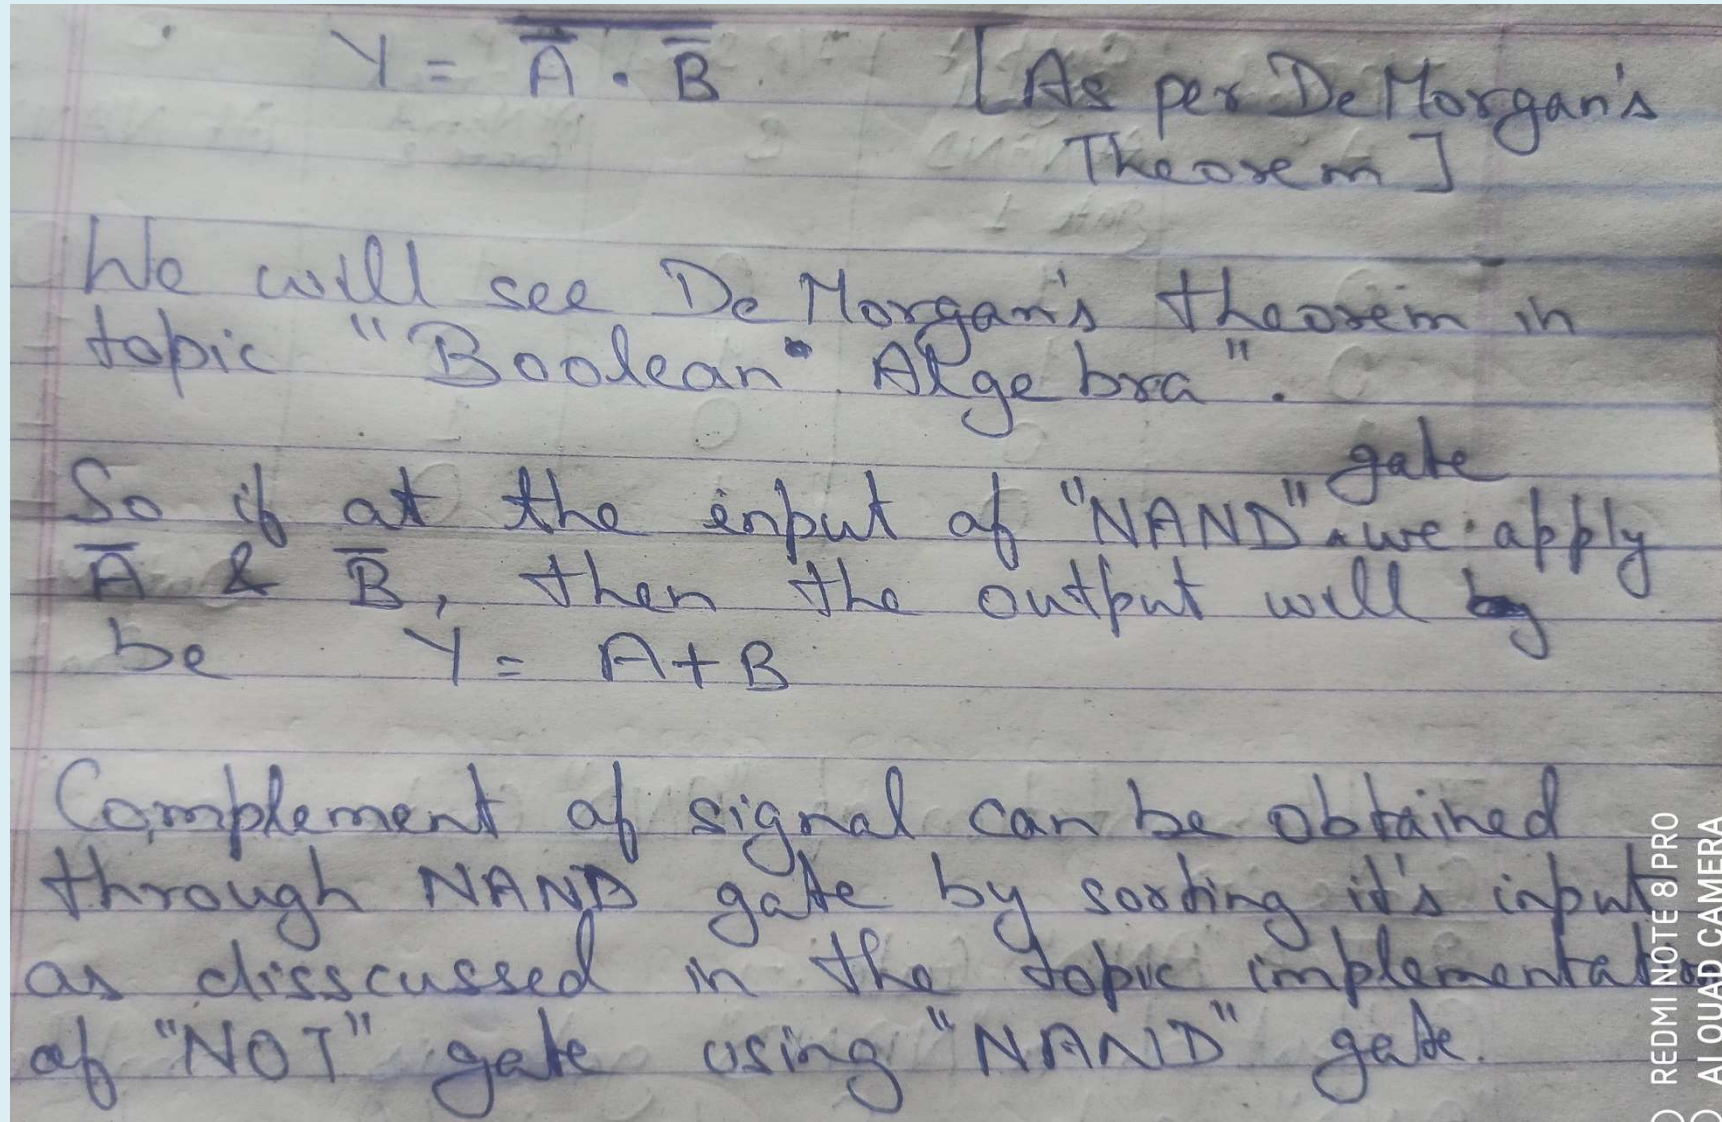 Y = \overline{\overline{A} · \overline{B}} [As per De Morgan's
Theorem]
We will see De Morgan's theorem in
topic "Boolean Algebra".
gate
So if at the input of "NAND" we apply
A̅ & B̅, then the output will
be Y = A+B
Complement of signal can be obtained
through NAND gate by sorting it's input
as disscussed in the topic implementation
of "NOT" gate using "NAND" gate.
REDMI NOTE 8 PRO
AI QUAD CAMERA